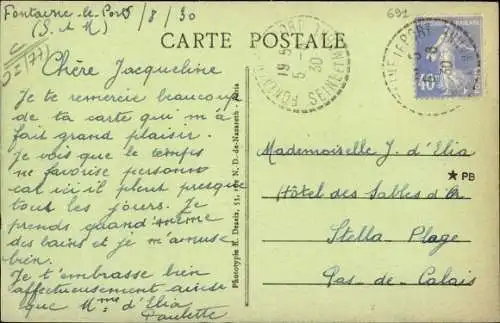 Fontaine-le-Port 5/8/30
(S. et M)
691
CARTE POSTALE
Chère Jacqueline
Je te remercie beaucoup
de ta carte qui m'a
fait grand plaisir.
Je vois que le temps
ne favorise personne
car ici il pleut presque
tout les jours. Je
prends quand même
des bains et je m'amuse
bien.
Je t'embrasse bien
affectueusement ainsi
que Mme d'Elia
Paulette
Phototypie H. Desaix, 51, rue N. D. de-Nazareth - Paris
19 5
5 - 8
30
SEINE ET M
40
Mademoiselle J. d'Elia
★ PB
Hôtel des Sables d'Or
Stella Plage
Pas-de-Calais